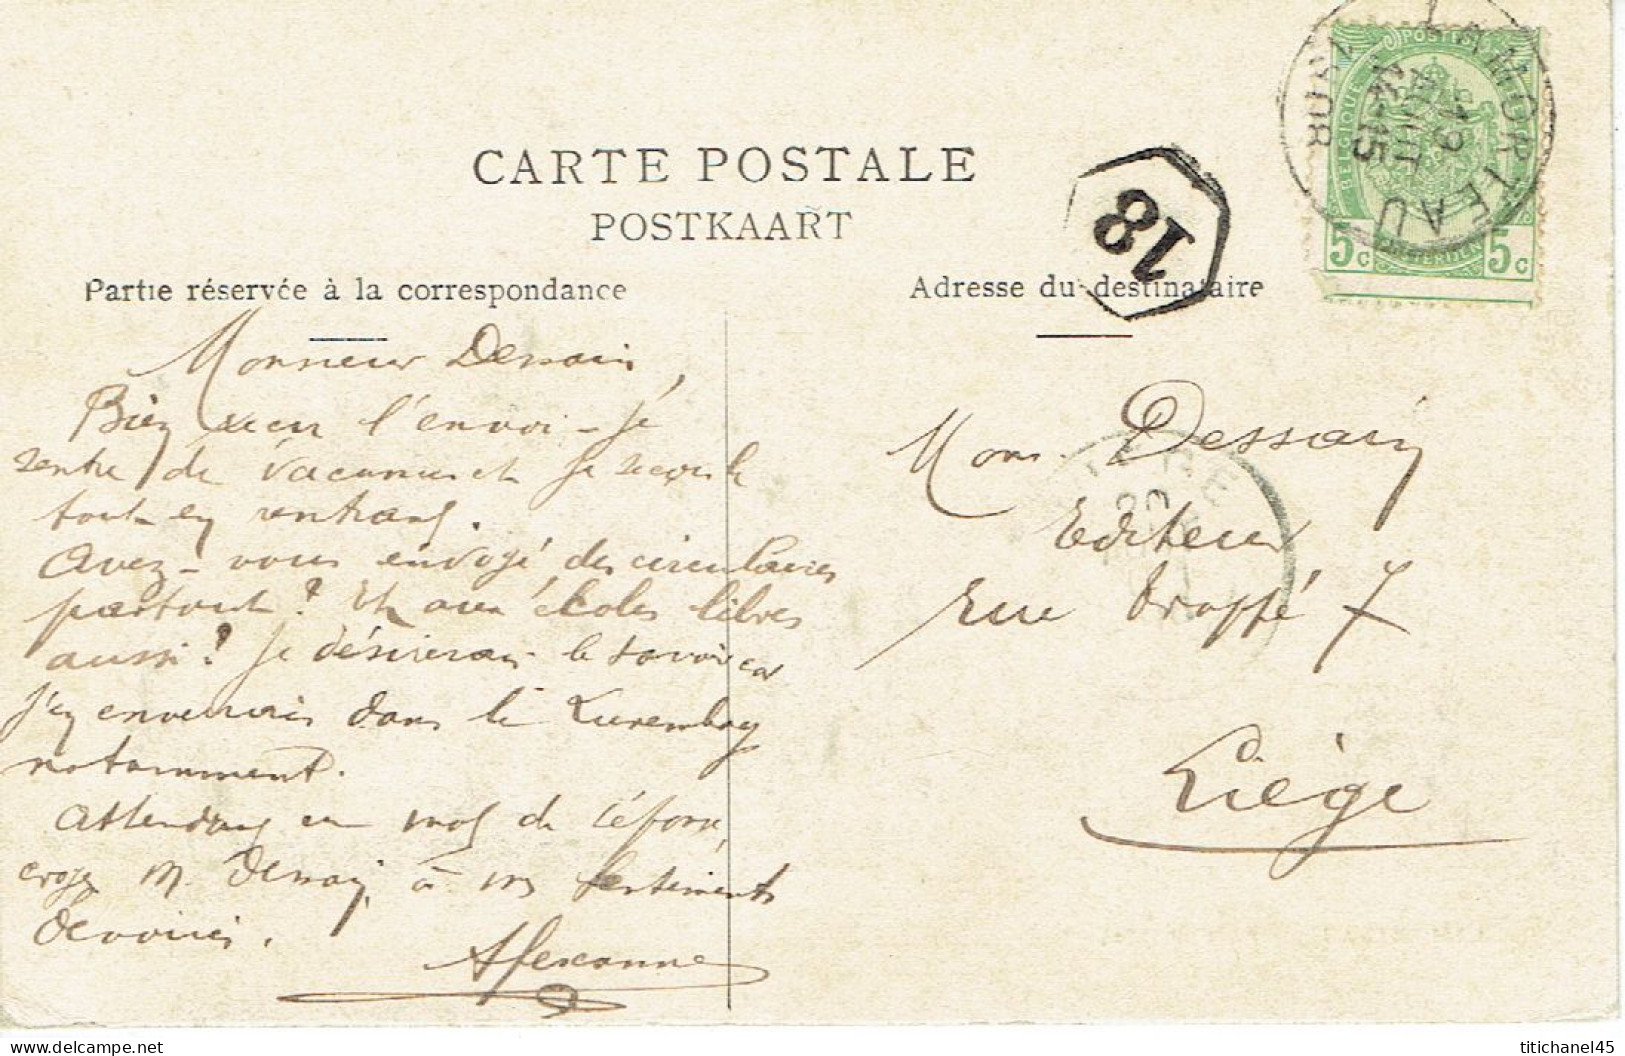 CARTE POSTALE
POSTKAART
Partie réservée à la correspondance
Adresse du destinataire
18
LAMORTEAU
19
AOUT
14-15
1908
POSTES
BELGIQUE
5c 5c
Monsieur Dessain,
Bien reçu l'envoi - je
rentre de vacances et je reçois le
tout en rentrant.
Avez-vous envoyé des circulaires
partout? Et aux écoles libres
aussi? Je désirerais le savoir car
j'en enverrais dans le Luxembourg
notamment.
Attendant un mot de réponse,
croyez M. Dessain, à mes sentiments
dévoués.
Mons. Dessain
Editeur
Rue Trappé 7
Liège
titichanel45